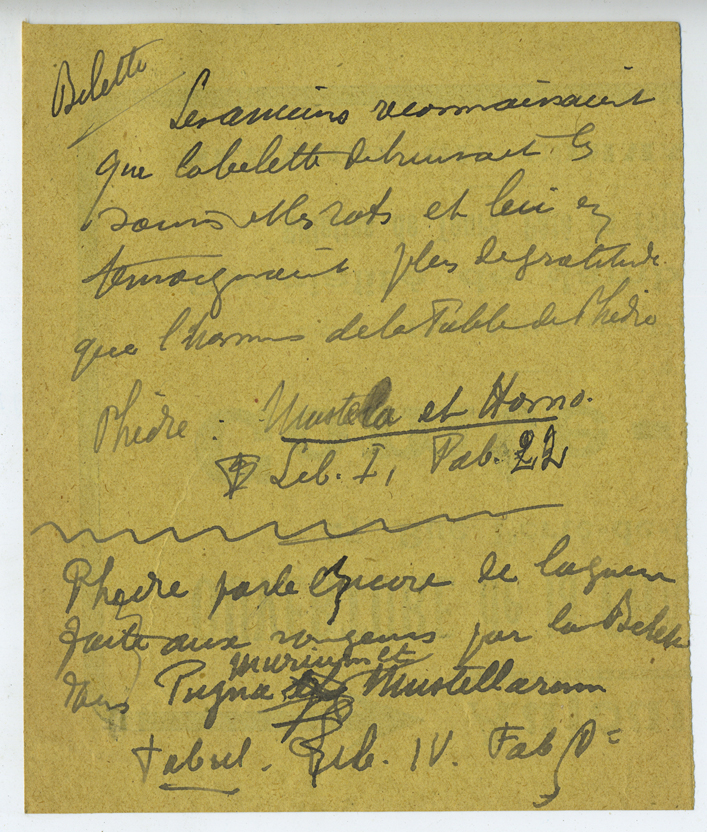 Belette
Les anciens reconnaissaient
que la belette détruisait les
souris et les rats et lui en
témoignaient plus de gratitude
que l'homme de la Fable de Phèdre
Phèdre : Mustela et Homo.
Lib. I, Fab. 22
Phèdre parle encore de la guerre
faite aux rongeurs par la Belette
dans Pugna murium et Mustellarum
Lib. IV. Fab